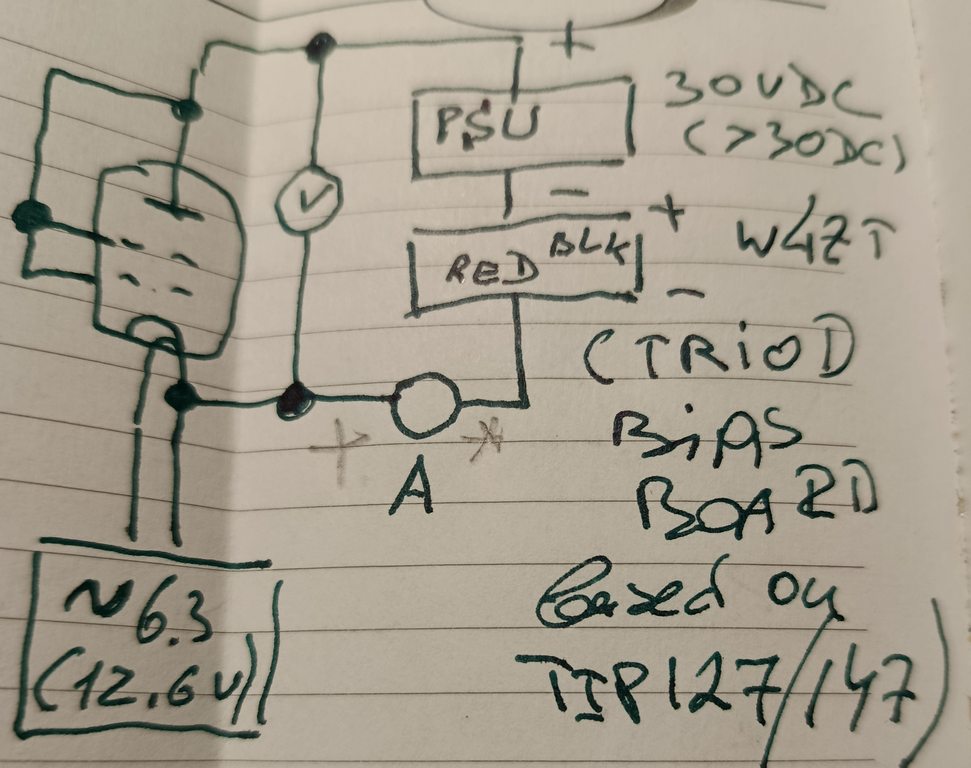 +
PSU
30VDC
(>30DC)
V
-
+
BLK
RED
W4ZT
-
(TRIOD
BIAS
BOARD
based on
TIP127/147)
+
A
~6.3
(12.6V)